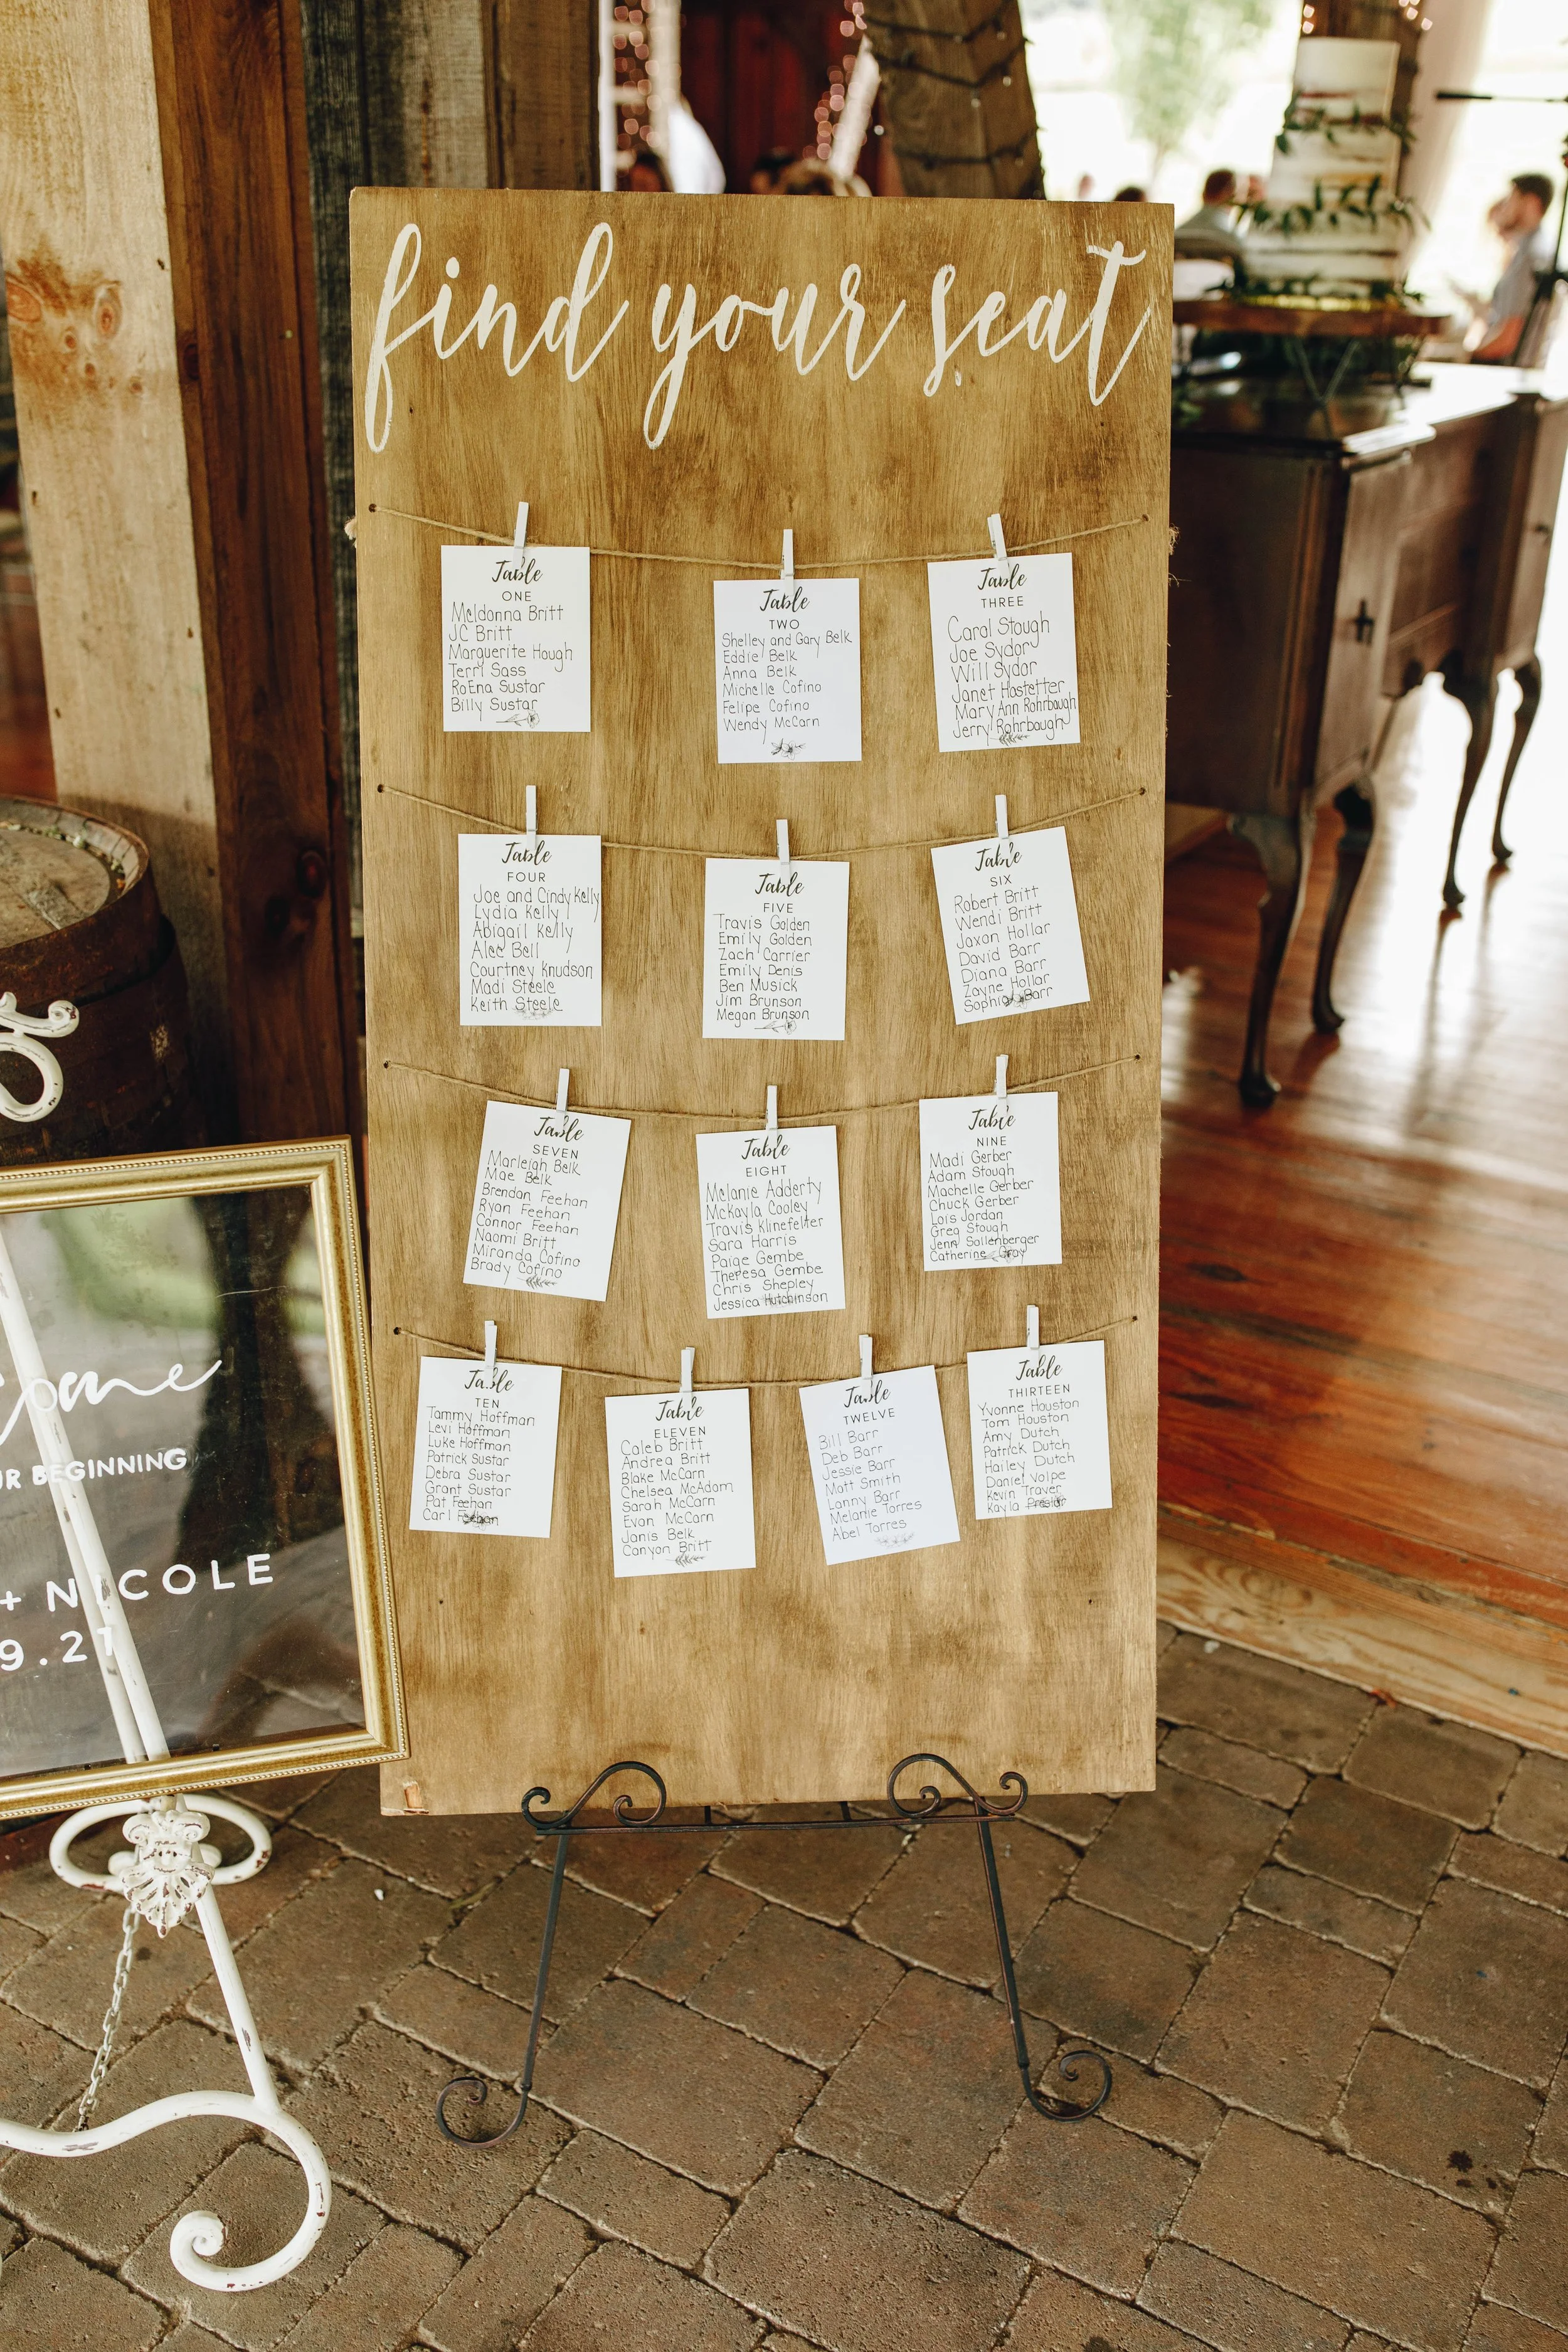 find your seat
Table
ONE
Meldonna Britt
JC Britt
Marguerite Hough
Terri Sass
RoEna Sustar
Billy Sustar
Table
TWO
Shelley and Gary Belk
Eddie Belk
Anna Belk
Michelle Cofino
Felipe Cofino
Wendy McCarn
Table
THREE
Carol Stough
Joe Sydor
Will Sydor
Janet Hostetter
Mary Ann Rohrbaugh
Jerry Rohrbaugh
Table
FOUR
Joe and Cindy Kelly
Lydia Kelly
Abigail Kelly
Alec Bell
Courtney Knudson
Madi Steele
Keith Steele
Table
FIVE
Travis Golden
Emily Golden
Zach Carrier
Emily Denis
Ben Musick
Jim Brunson
Megan Brunson
Table
SIX
Robert Britt
Wendi Britt
Jaxon Hollar
David Barr
Diana Barr
Zayne Hollar
Sophia Barr
Table
SEVEN
Marleigh Belk
Mae Belk
Brendan Feehan
Ryan Feehan
Connor Feehan
Naomi Britt
Miranda Cofino
Brady Cofino
Table
EIGHT
Melanie Adderty
McKayla Cooley
Travis Klinefelter
Sara Harris
Paige Gembe
Theresa Gembe
Chris Shepley
Jessica Hutchinson
Table
NINE
Madi Gerber
Adam Stough
Machelle Gerber
Chuck Gerber
Lois Jordan
Greg Stough
Jenn Sollenberger
Catherine Gray
Table
TEN
Tammy Hoffman
Levi Hoffman
Luke Hoffman
Patrick Sustar
Debra Sustar
Grant Sustar
Pat Feehan
Carl Feehan
Table
ELEVEN
Caleb Britt
Andrea Britt
Blake McCarn
Chelsea McAdom
Sarah McCarn
Evan McCarn
Janis Belk
Canyon Britt
Table
TWELVE
Bill Barr
Deb Barr
Jessie Barr
Matt Smith
Lanny Barr
Melanie Torres
Abel Torres
Table
THIRTEEN
Yvonne Houston
Tom Houston
Amy Dutch
Patrick Dutch
Hailey Dutch
Daniel Volpe
Kevin Traver
Kayla Preslar
ome
UR BEGINNING
+ NICOLE
9.21